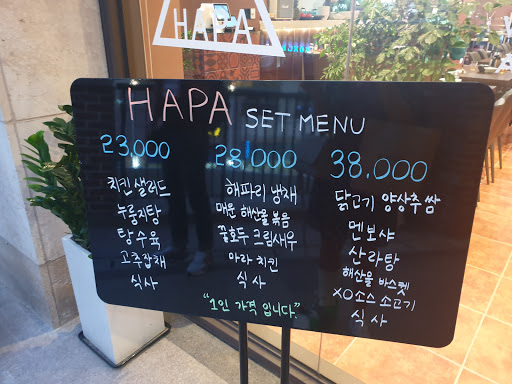 HAPA
HAPA SET MENU
23,000
치킨샐러드
누룽지탕
탕수육
고추잡채
식사
28,000
해파리냉채
매운 해산물 볶음
꿀호두 크림새우
마라 치킨
식사
38,000
닭고기 양상추쌈
멘보샤
산라탕
해산물 바스켓
XO소스 소고기
식사
"1인 가격 입니다."